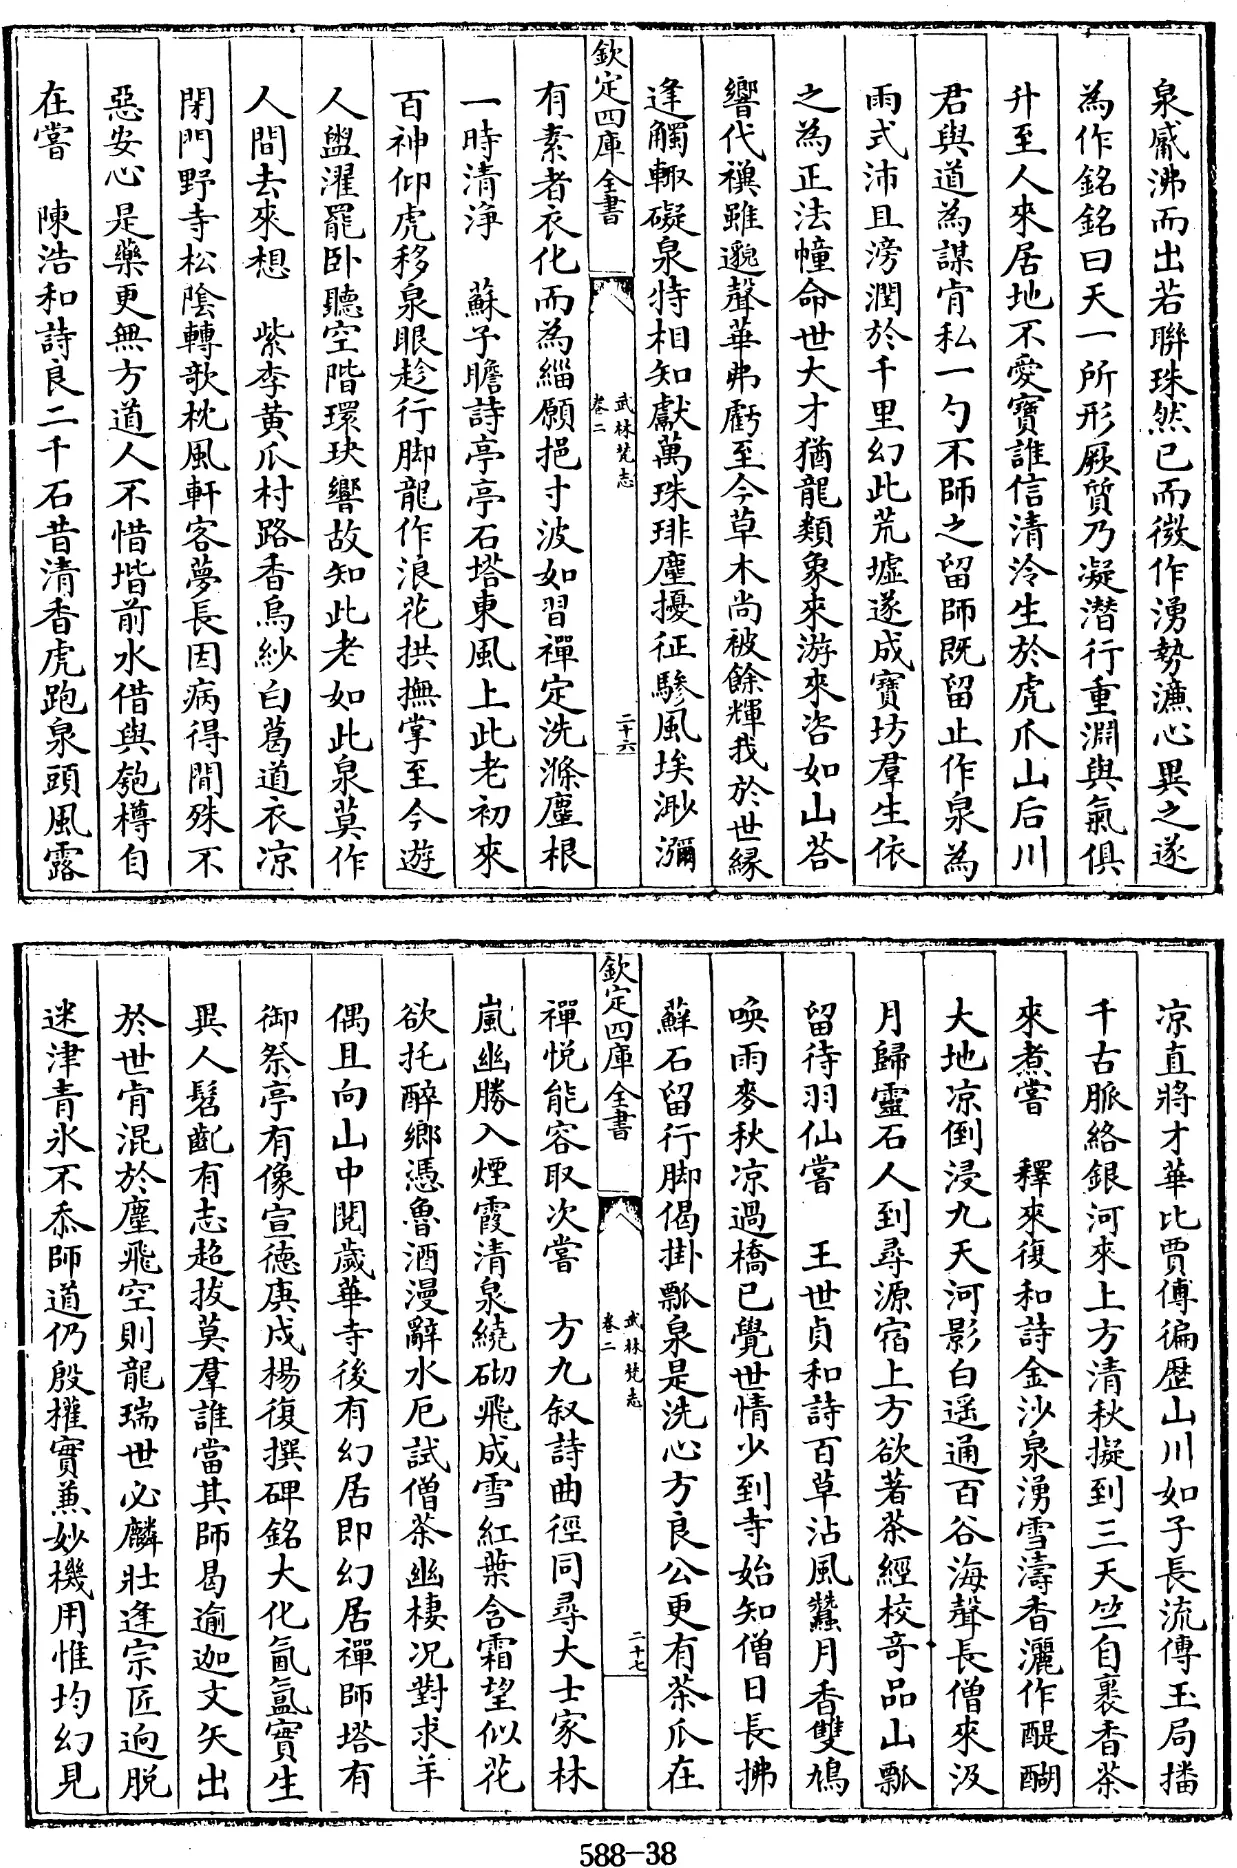 泉觱沸而出若聯珠然已而微作湧勢濂心異之遂
為作銘銘曰天一所形厥質乃凝潜行重淵與氣俱
升至人來居地不愛寶誰信清泠生於虎爪山后川
君與道為謀肯私一勺不師之留師既留止作泉為
雨式沛且滂潤於千里幻此荒墟遂成寶坊羣生依
之為正法幢命世大才猶龍類象來游來咨如山荅
響代禩雖邈聲華弗虧至今草木尚被餘輝我於世緣
逢觸輙礙泉特相知獻萬珠琲塵擾征驂風埃渺瀰
欽定四庫全書
武林梵志
卷二
二十六
有素者衣化而為緇願挹寸波如習禪定洗滌塵根
一時清浄 蘇子瞻詩亭亭石塔東風上此老初來
百神仰虎移泉眼趁行脚龍作浪花拱撫掌至今遊
人盥濯罷卧聽空階環玦響故知此老如此泉莫作
人間去來想 紫李黄瓜村路香烏紗白葛道衣凉
閉門野寺松陰轉歌枕風軒客夢長因病得閒殊不
惡安心是藥更無方道人不惜堦前水借與匏樽自
在嘗 陳浩和詩良二千石昔清香虎跑泉頭風露
凉直將才華比賈傅徧歷山川如子長流傳玉局播
千古脈絡銀河來上方清秋擬到三天竺自裹香茶
來煮嘗 釋來復和詩金沙泉湧雪濤香灑作醍醐
大地凉倒浸九天河影白遥通百谷海聲長僧來汲
月歸靈石人到尋源宿上方欲著茶經校奇品山瓢
留待羽仙嘗 王世貞和詩百草沾風蠶月香雙鳩
喚雨麥秋凉過橋已覺世情少到寺始知僧日長拂
蘚石留行脚偈掛瓢泉是洗心方良公更有茶瓜在
欽定四庫全書
武林梵志
卷二
二十七
禪悦能容取次嘗 方九叙詩曲徑同尋大士家林
嵐幽勝入煙霞清泉繞砌飛成雪紅葉含霜望似花
欲托醉鄉憑魯酒漫辭水厄試僧茶幽棲况對求羊
偶且向山中閲歲華寺後有幻居即幻居禪師塔有
御祭亭有像宣徳庚戌楊復撰碑銘大化氤氲實生
異人髫齓有志超拔莫羣誰當其師曷逾迦文矢出
於世肯混於塵飛空則龍瑞世必麟壮逢宗匠逈脱
迷津青氷不忝師道仍殷權實兼妙機用惟均幻見
588-38